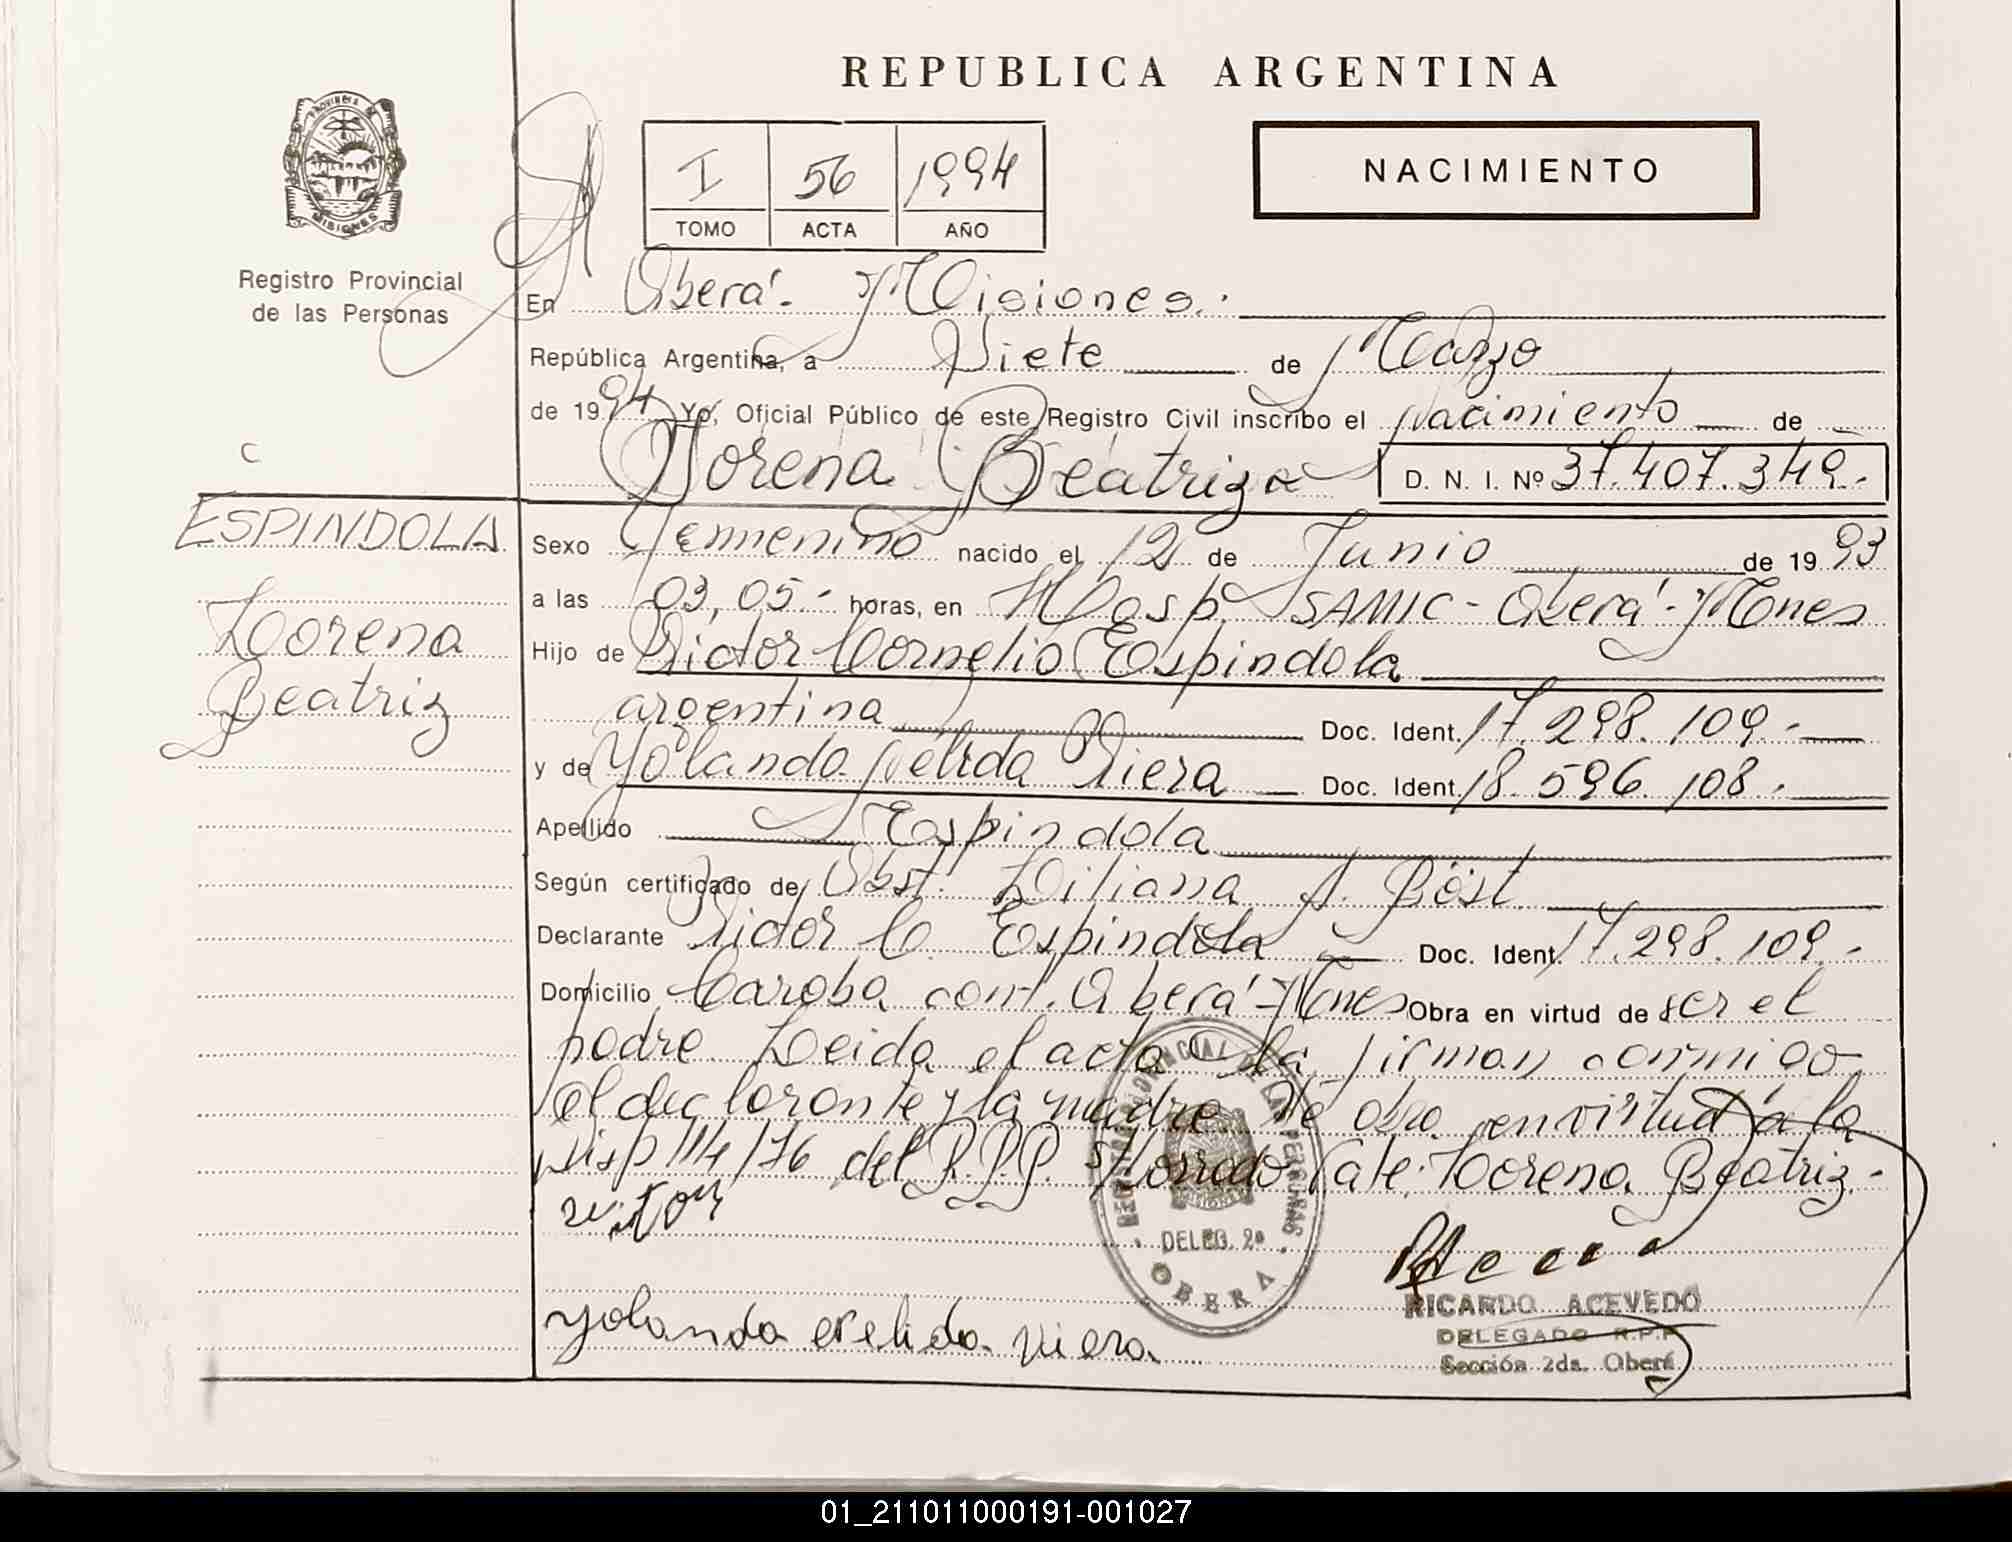 REPUBLICA ARGENTINA
PROVINCIA DE
MISIONES
Registro Provincial
de las Personas
I 56 1994
TOMO ACTA AÑO
NACIMIENTO
En Oberá - Misiones.
República Argentina, a Siete de Marzo
de 1994 Yo, Oficial Público de este Registro Civil inscribo el nacimiento de
Lorena Beatriz D. N. I. Nº 37.407.349.-
C
ESPINDOLA
Lorena
Beatriz
Sexo Femenino nacido el 12 de Junio de 1993
a las 03,05.- horas, en Hosp. SAMIC - Oberá - Mnes
Hijo de Victor Cornelio Espindola
argentina Doc. Ident. 17.298.109.-
y de Yolanda Nélida Viera Doc. Ident. 18.596.108.-
Apellido Espindola
Según certificado de Obst. Liliana A. Böst
Declarante Victor C. Espindola Doc. Ident. 17.298.109.-
Domicilio Caroba cont. Oberá - Mnes Obra en virtud de ser el
padre. Leida el acta la firman conmigo
el declarante y la madre. Se obra en virtud a la
Disp 114/76 del R.P.P. S/ borrado Vale: Lorena Beatriz.-
Yolanda nelida viera
REGISTRO PROVINCIAL DE LAS PERSONAS
DELEG. 2ª
OBERA
RICARDO ACEVEDO
DELEGADO R.P.P
Sección 2da. Oberá
01_211011000191-001027